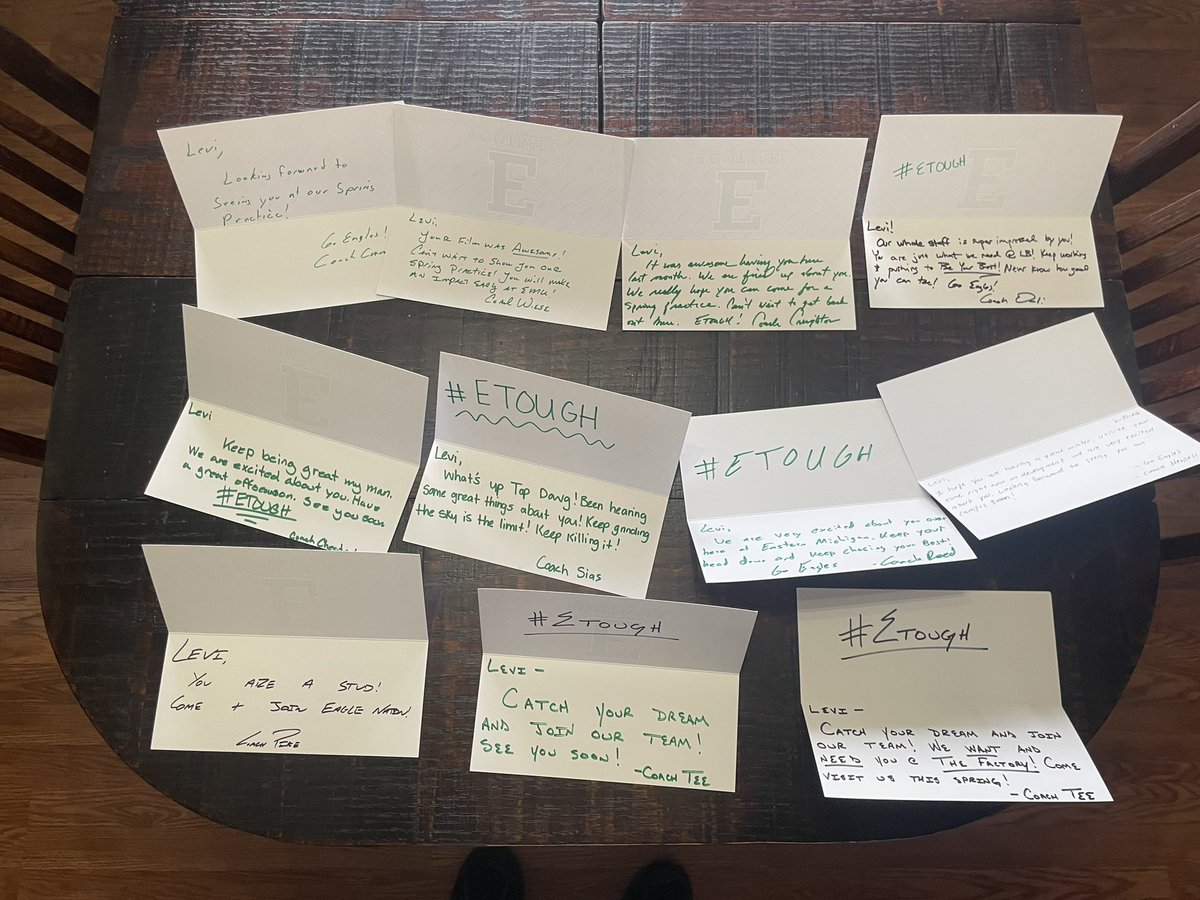 Levi,
Looking forward to
Seeing you at our Spring
Practice!
Go Eagles!
Coach
FOOTBALL
E
Levi,
Your Film was Awesome!
Can't wait to show you our
Spring Practice! You will make
an impact easy at EMU!
Coach
FOOTBALL
E
Levi,
It was awesome having you here
last month. We are fired up about you.
We really hope you can come for a
Spring practice. Can't wait to get back
out here. ETOUGH! Coach Creighton
FOOTBALL
E
#ETOUGH
Levi!
Our whole staff is super impressed by you!
You are just what we need @ LB! Keep working
& pushing to Be Your Best! Never know how good
you can be! Go Eagles!
Coach
E
Levi
Keep being great my man.
We are excited about you. Have
a great offseason. See you soon
#ETOUGH
Coach
#ETOUGH
Levi,
What's up Top Dawg! Been hearing
some great things about you! Keep grinding
the sky is the limit! Keep killing it!
Coach Sias
#ETOUGH
Levi,
We are very excited about you over
here at Eastern Michigan. Keep your
head down and keep chasing your Best!
Go Eagles -Coach Reed
Levi,
I hope you are having a great winter, utilize your
time right now on development. We are very excited
about you. Looking forward to seeing you on
campus soon!
- Go Eagles
Coach
E
Levi,
You are a stud!
Come + join Eagle Nation!
Coach Pike
#ETOUGH
Levi -
Catch your dream
and join our team!
See you soon!
-Coach Tee
#ETOUGH
Levi -
Catch your dream and join
our team! We want and
need you @ The Factory! Come
visit us this spring!
- Coach Tee